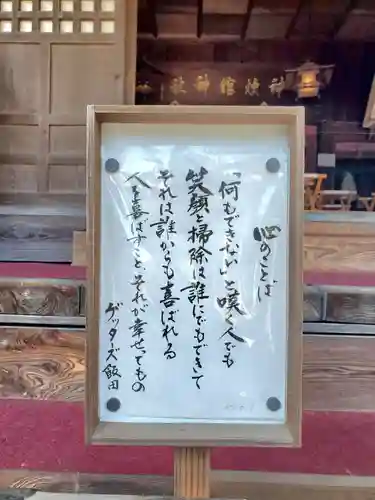 心のことば
「何もできない」と嘆く人でも
笑顔と掃除は誰にでもできて
それは誰からも喜ばれる
人を喜ばすこと、それが幸せってもの
ゲッターズ飯田